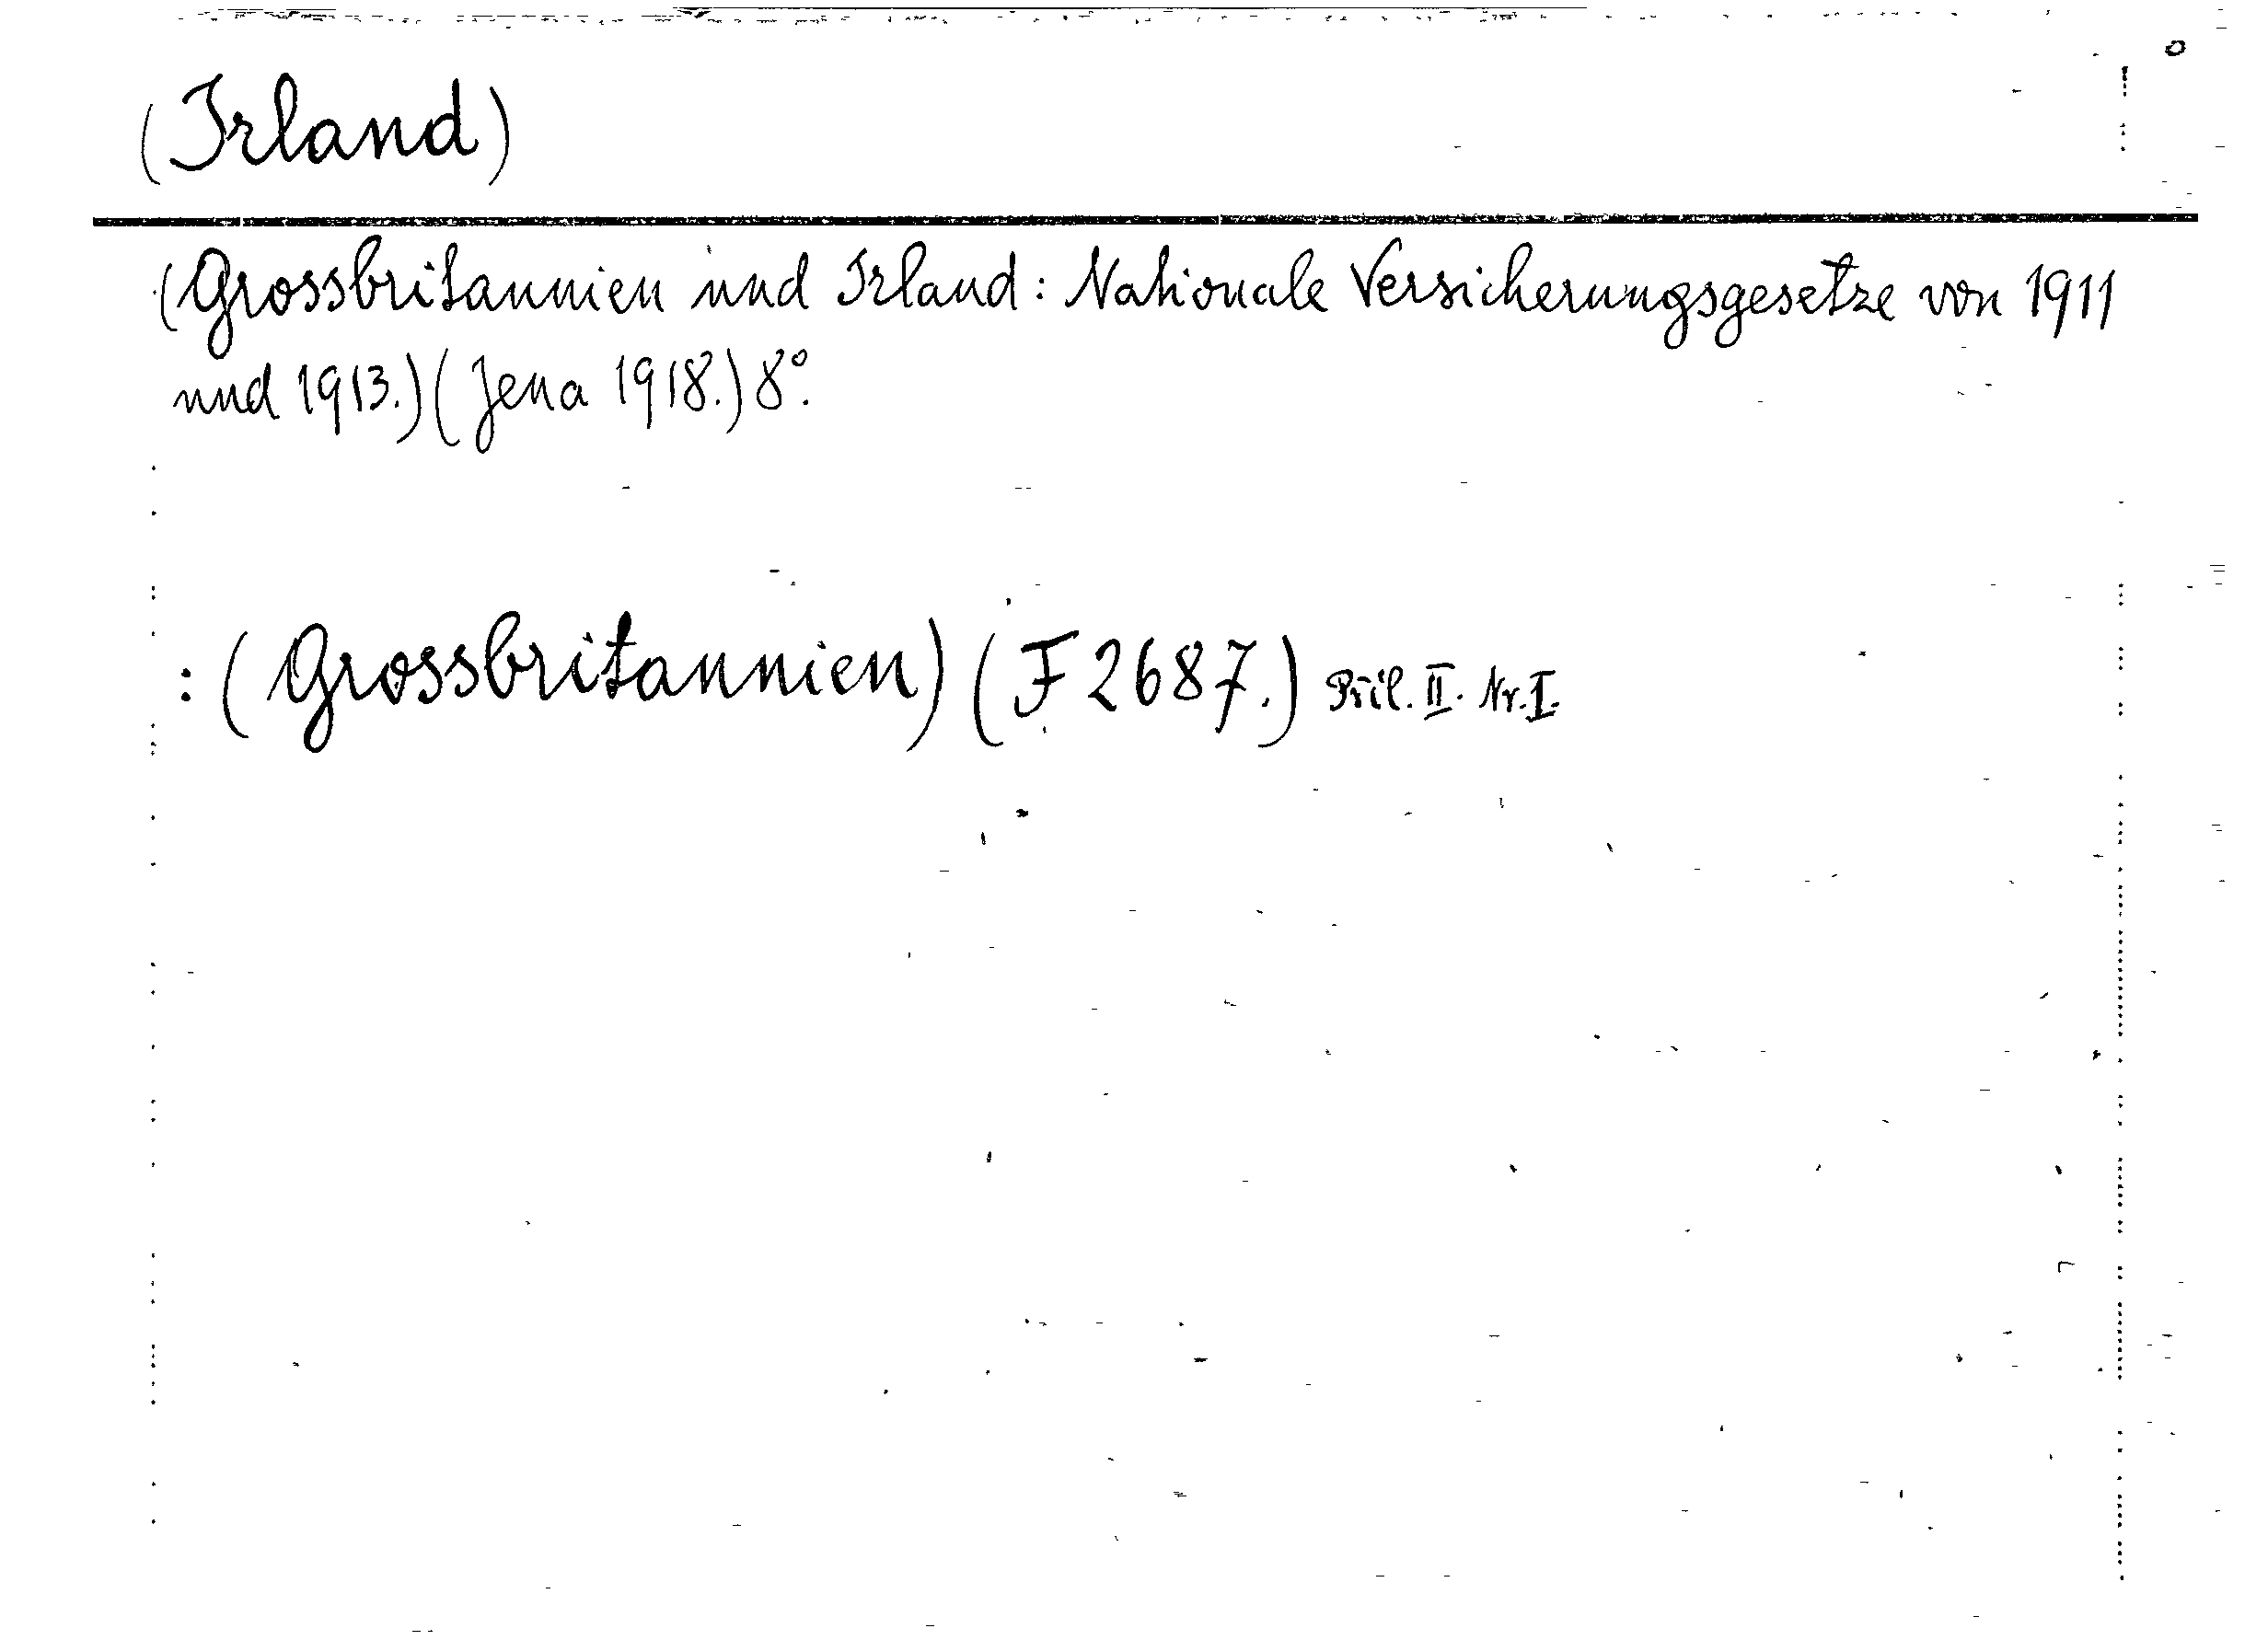 (Irland)
(Grossbritannien und Irland: Nationale Versicherungsgesetze von 1911
und 1913.) (Jena 1918.) 8°.
: (Grossbritannien) (F 2687.) Příl. II. Nr. I.